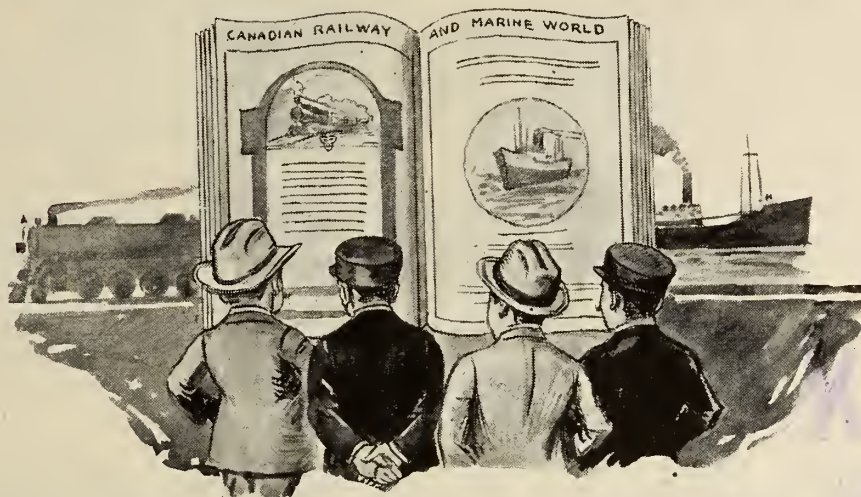 CANADIAN RAILWAY
AND MARINE WORLD